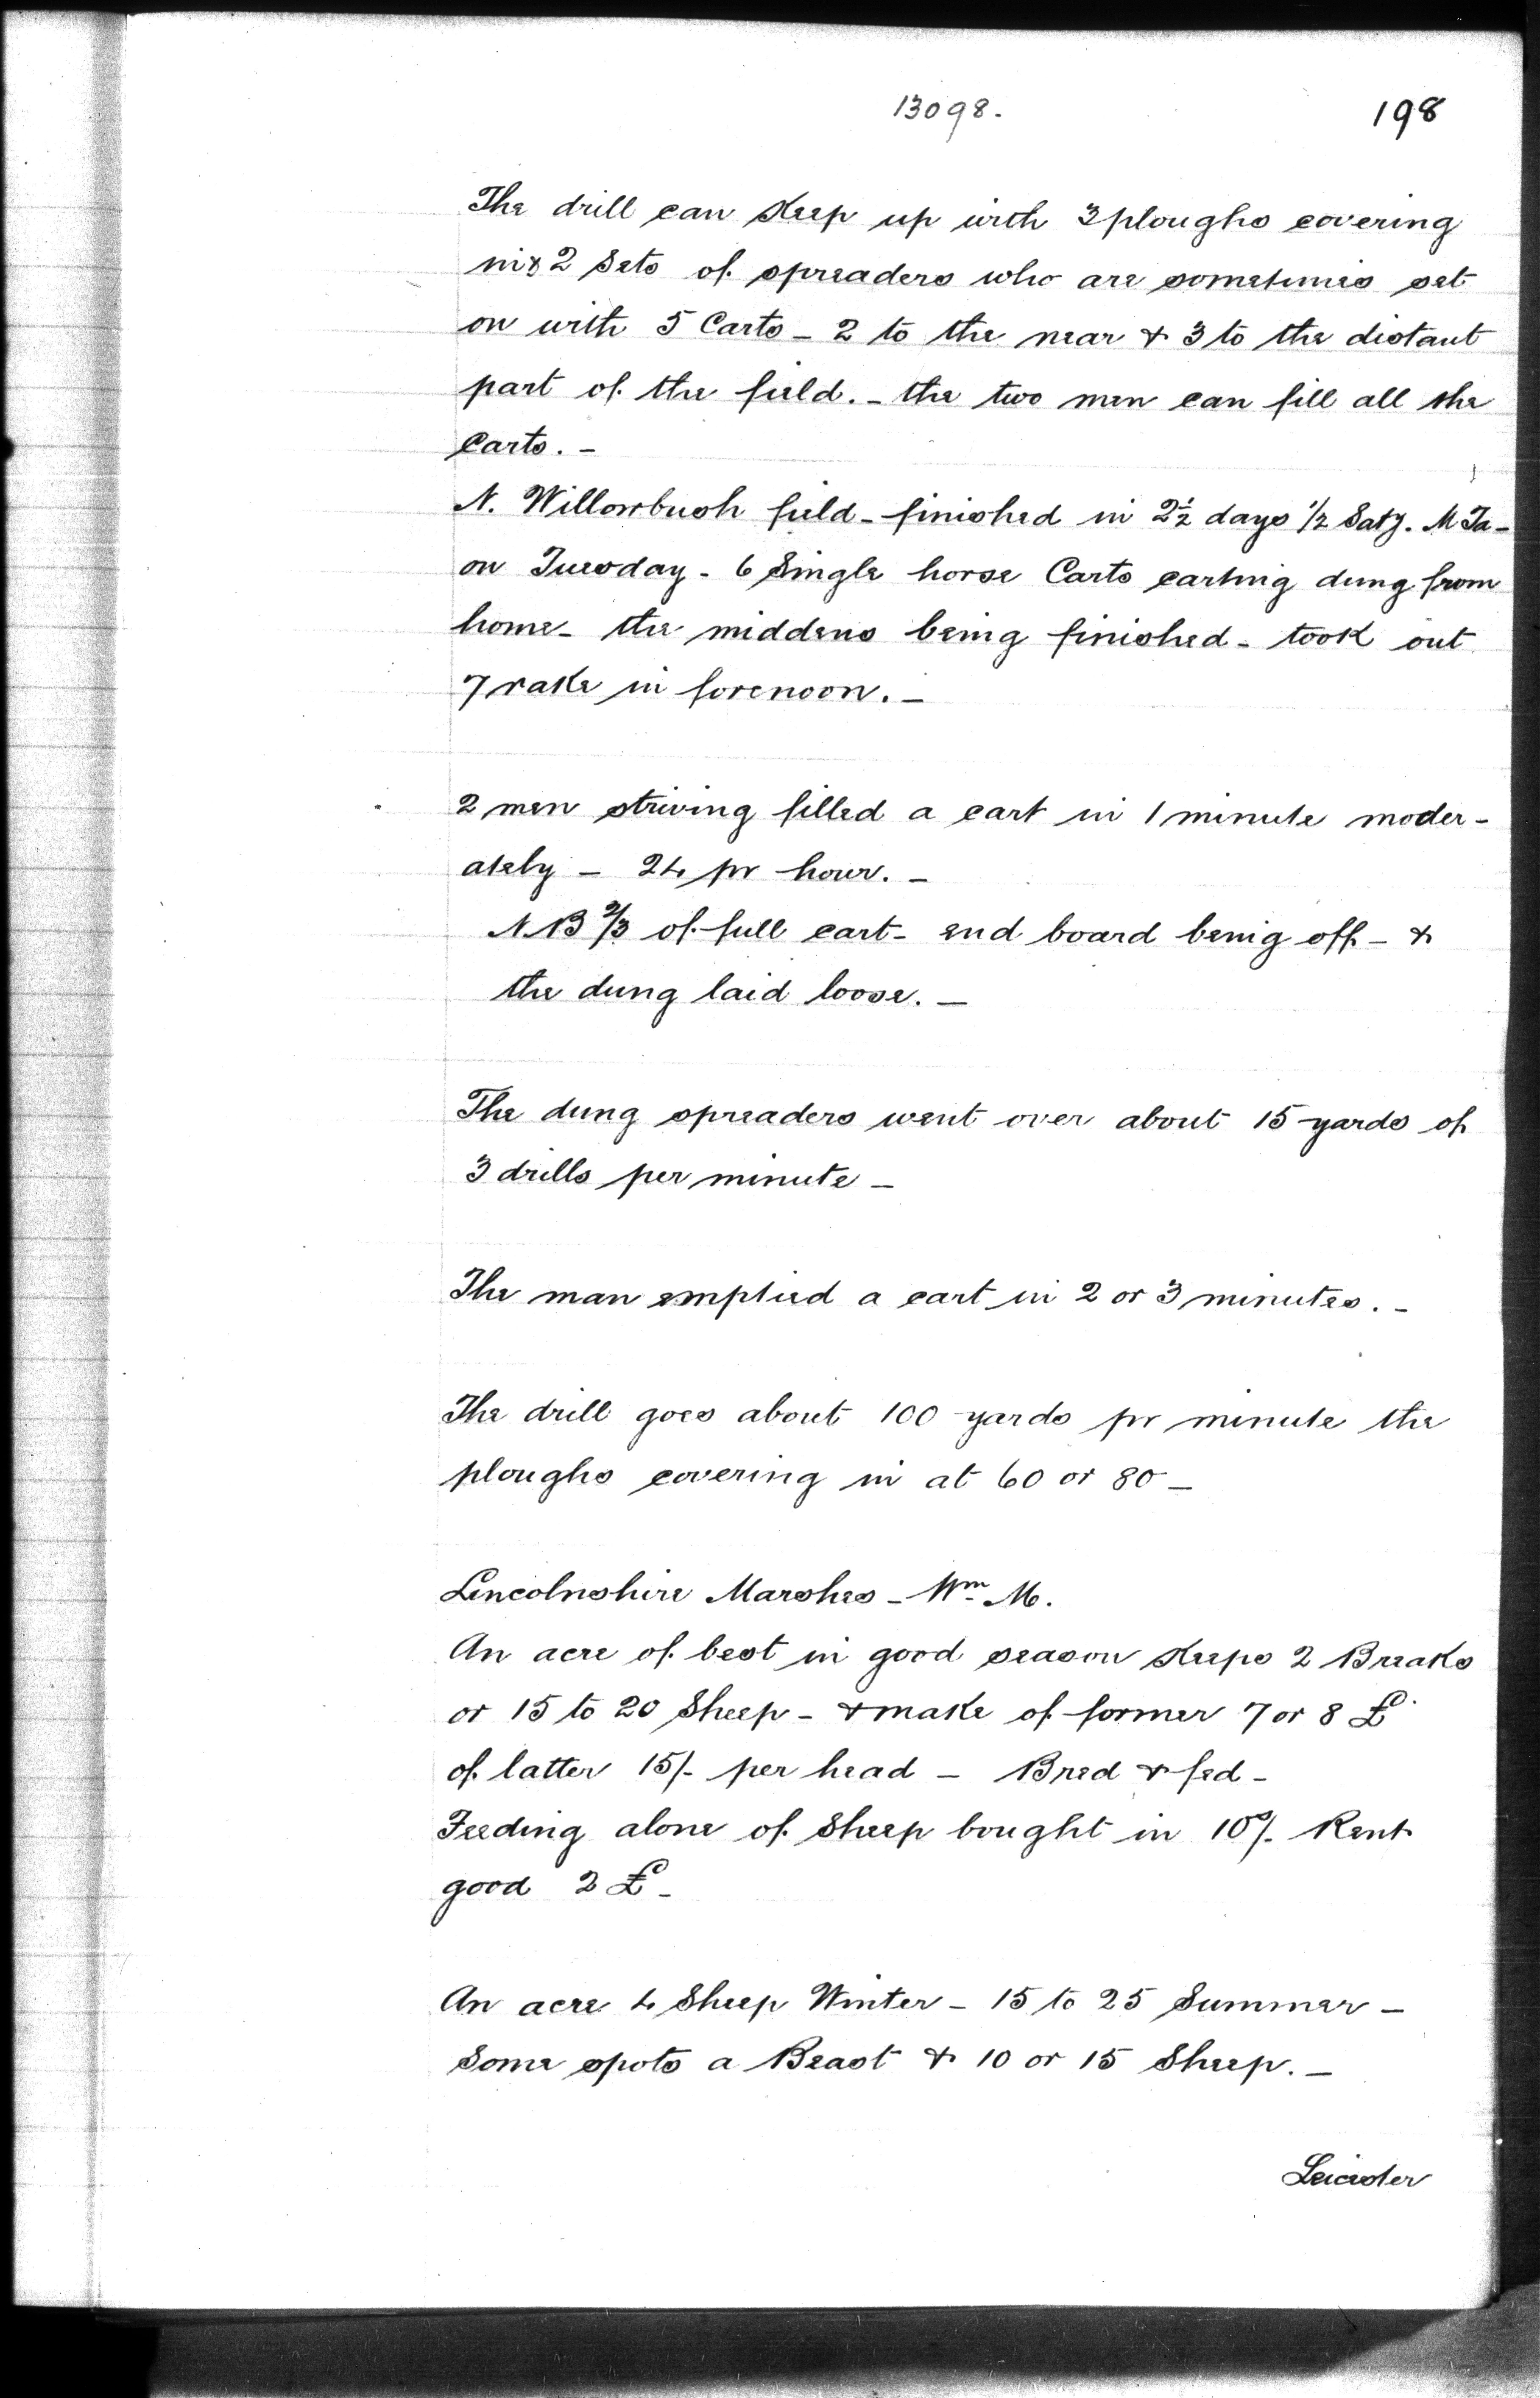 13098.
198
The drill can keep up with 3 ploughs covering
in & 2 Sets of spreaders who are sometimes set
on with 5 Carts - 2 to the near & 3 to the distant
part of the field. - the two men can fill all the
Carts. -
N. Willowbush field - finished in 2½ days ½ Saty. M Ta -
on Tuesday - 6 Single horse Carts carting dung from
home - the middens being finished - took out
7 rake in forenoon. -
2 men striving filled a cart in 1 minute moder -
ately - 24 pr hour. -
NB 2/3 of full cart - end board being off - &
the dung laid loose. -
The dung spreaders went over about 15 yards of
3 drills per minute -
The man emptied a cart in 2 or 3 minutes. -
The drill goes about 100 yards pr minute the
ploughs covering in at 60 or 80 -
Lincolnshire Marshes - Wm M.
An acre of best in good season keeps 2 Breaks
or 15 to 20 Sheep - & make of former 7 or 8 £
of latter 15/- per head - Bred & fed -
Feeding alone of Sheep bought in 10/- Rent
good 2 £ -
An acre 4 Sheep Winter - 15 to 25 Summer -
Some spots a Beast & 10 or 15 Sheep. -
Leicester